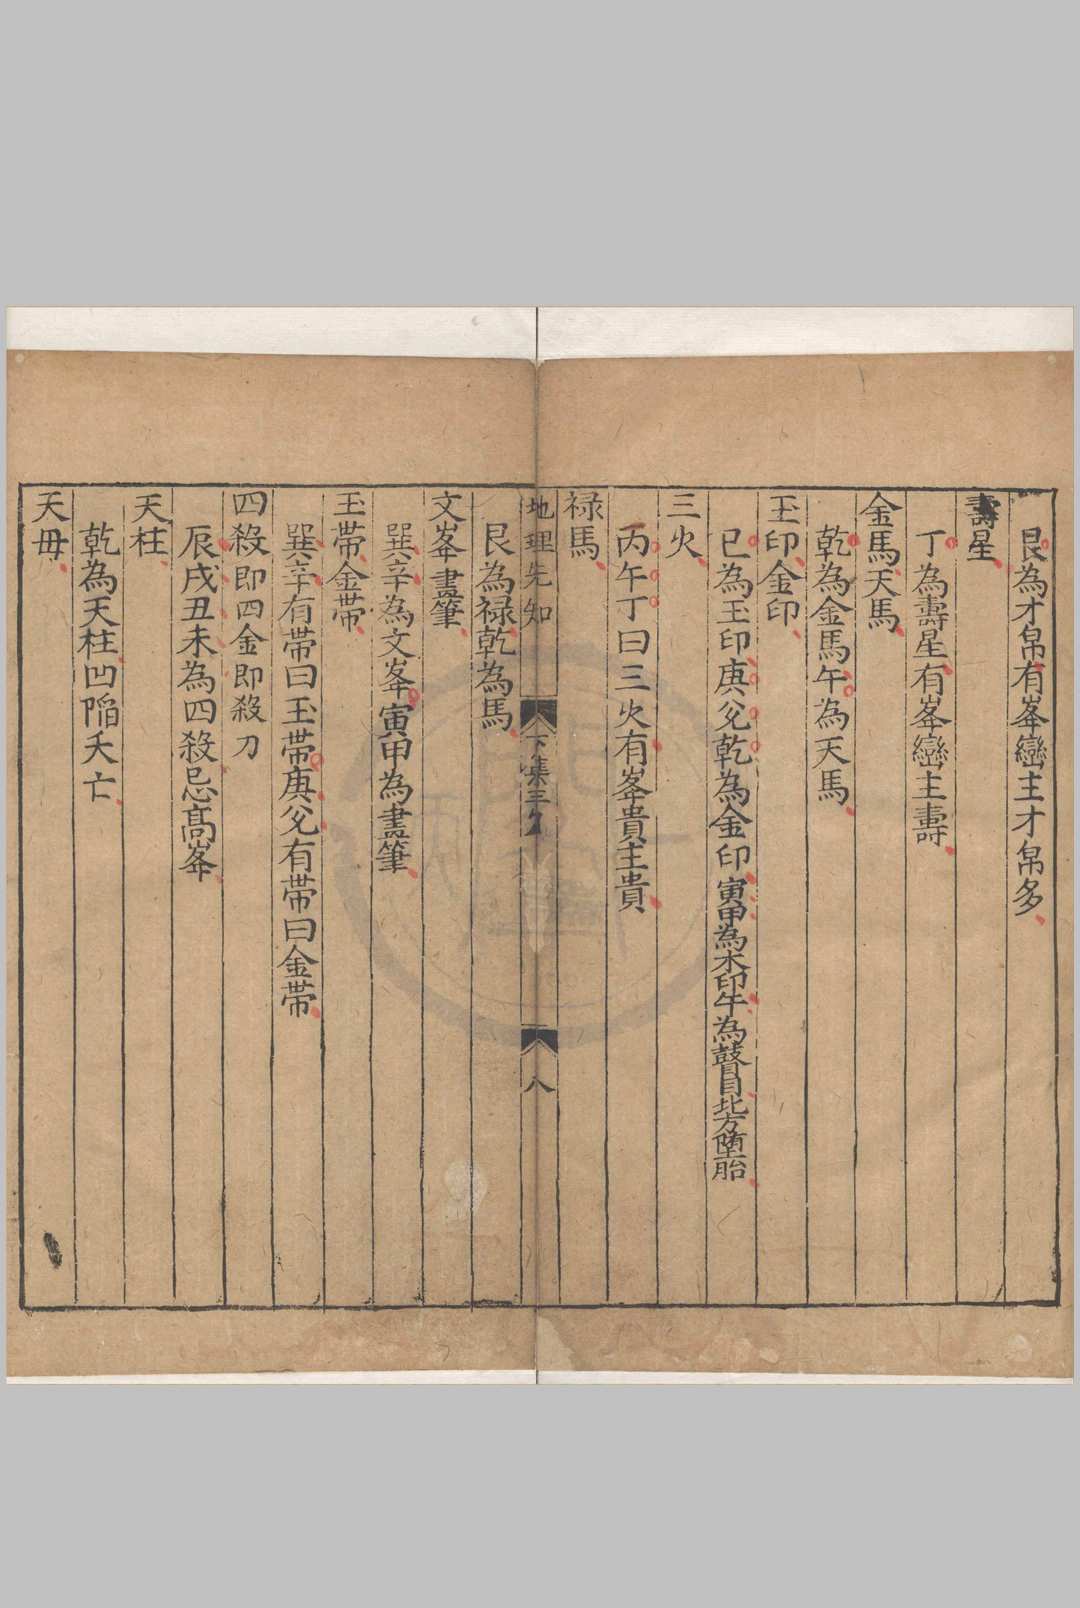 艮為才帛有峯巒主才帛多
壽星
丁為壽星有峯巒主壽
金馬天馬
乾為金馬午為天馬
玉印金印
巳為玉印庚兊乾為金印寅甲為木印午為瞽目北方墮胎
三火
丙午丁曰三火有峯貴主貴
禄馬
地理先知
下集三
八
艮為禄乾為馬
文峯畫筆
巽辛為文峯寅甲為畫筆
玉帶金帶
巽辛有帶曰玉帶庚兊有帶曰金帶
四殺即四金即殺刀
辰戌丑未為四殺忌高峯
天柱
乾為天柱凹陷夭亡
天毋